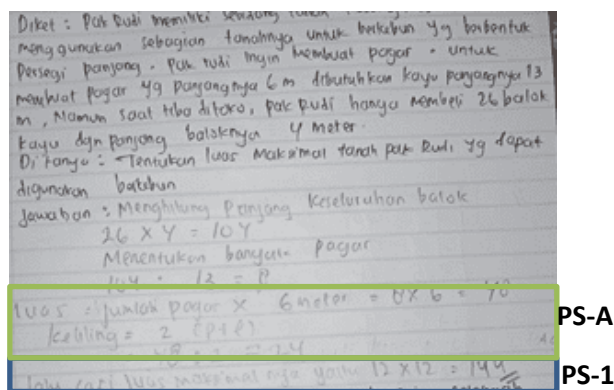 Diket : Pak Rudi memiliki
menggunakan sebagian tanahnya untuk berkebun yg berbentuk
Persegi panjang. Pak rudi ingin membuat pagar. untuk
membuat pagar yg panjangnya 6 m dibutuhkan kayu panjangnya 13
m, Namun saat tiba ditoko, pak Rudi hanya membeli 26 balok
kayu dgn panjang baloknya 4 meter.
Ditanya : Tentukan luas maksimal tanah pak Rudi yg dapat
digunakan
Jawaban : Menghitung Panjang Keseluruhan balok
26 X 4 = 104
Menentukan banyak pagar
104 : 13 = 8
luas = jumlah pagar X 6 meter = 8X 6 = 48
PS-A
keliling = 2 (P+l)
48 : 2 = 24
lalu cari luas maksimal nya yaitu 12 X 12 = 144
PS-1